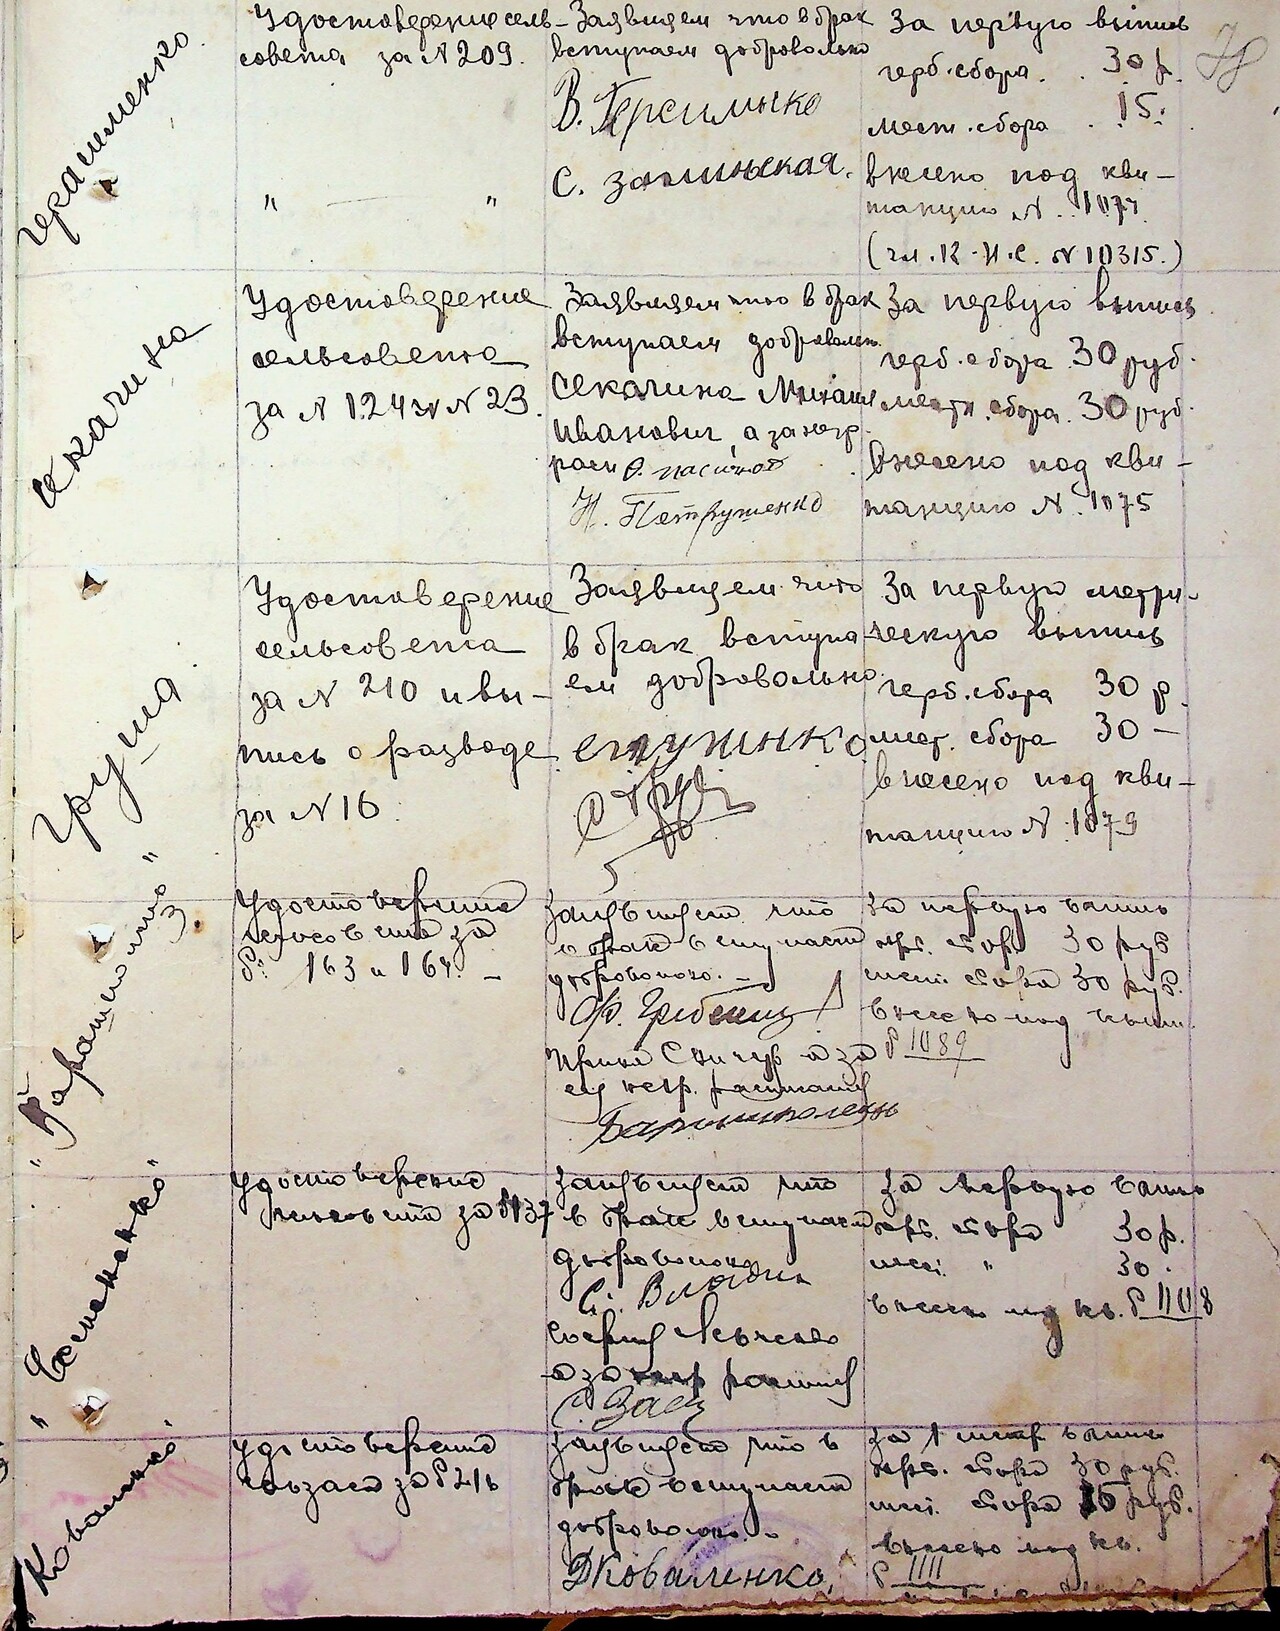 Герасименко
Удостоверение сель-
совета за № 209.
" — "
Заявляем что в брак
вступаем добровольно
В. Герсимнко
С. залинская.
За первую выпись
герб. сбора . . 30 р.
мест. сбора . 15.
внесено под кви-
танцию № 1074
(гл. К.И.С. № 10315.)
Секачина
Удостоверение
сельсовета
за № 124 и № 23.
Заявляем что в брак
вступаем добровольн.
Секачина Михаил
Иванович, а за негр.
расп
Н. Петрушенко
За первую выпись
герб. сбора 30 руб.
местн. сбора 30 руб.
внесено под кви-
танцию № 1075
Груша
Удостоверение
сельсовета
за № 210 и вы-
пись о разводе
за № 16
Заявляем что
в брак вступа-
ем добровольно
С Гру
За первую метри-
ческую выпись
герб. сбора 30 р.
мест. сбора 30 —
внесено под кви-
танцию № 1079
Удостоверение
сельсовета за
№ 163 и 164. —
Заявляем что
в брак вступаем
добровольно. —
Ф.
Ирина а за
ее негр. расписался
За первую выпись
герб. сбора 30 руб
мест. сбора 30 руб.
внесено под квит.
№ 1089
Удостоверение
сельсовета за № 137
Заявляем что
в брак вступаем
добровольно
София Левченко
а за негр расписался
С. Заец
За первую выпись
герб. сбора 30 р.
мест. " 30 .
внесен под кв. № 1108
"Коваленко"
Удостоверение
за № 216
Заявляем что в
брак вступаем
добровольно. —
Д Коваленко
За 1 метр выпись
герб. сбора 30 руб.
мест. сбора 15 руб.
внесено под кв.
№ 1111